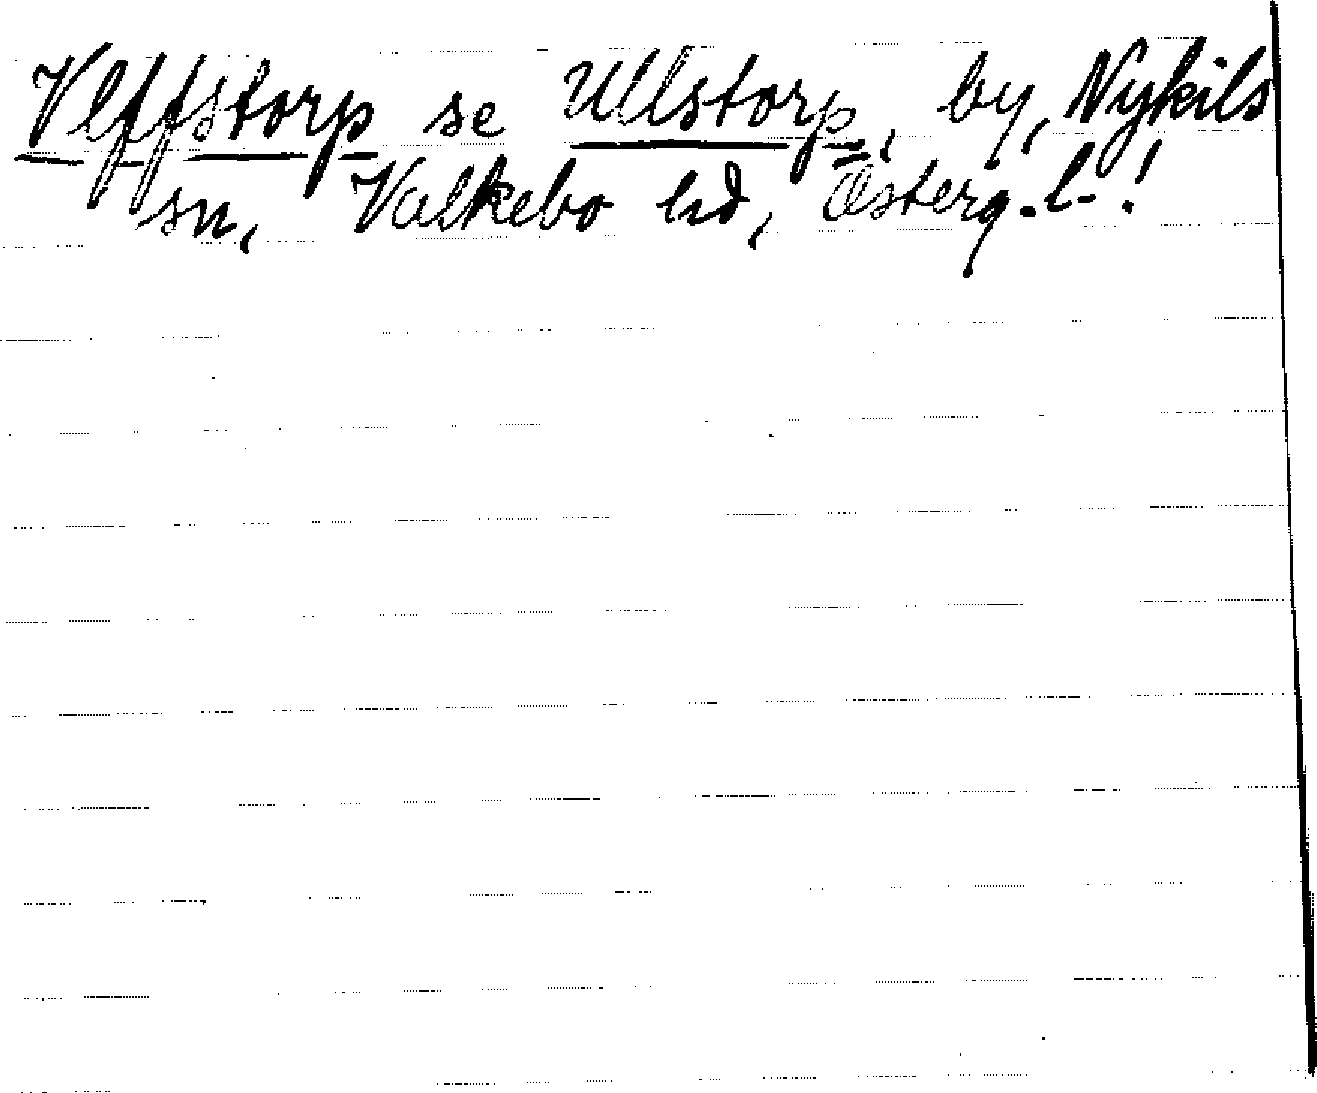 Vlffstorp se Ullstorp, by, Nykils
sn, Valkebo hd, Österg. l.!